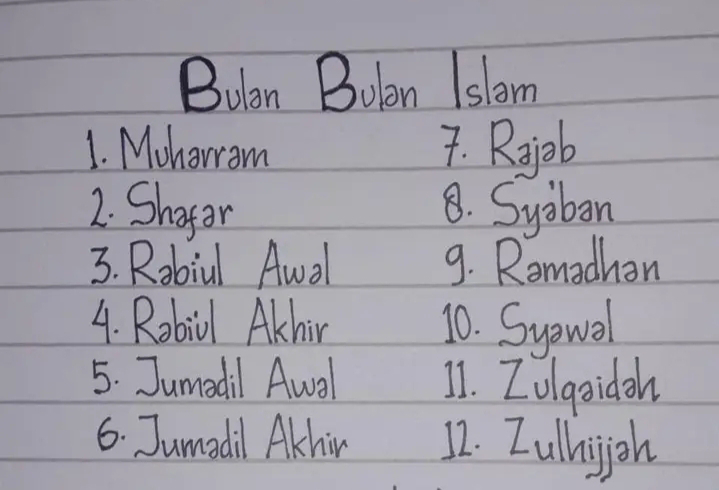 Bulan Bulan Islam
1. Muharram
2. Shafar
3. Rabiul Awal
4. Rabiul Akhir
5. Jumadil Awal
6. Jumadil Akhir
7. Rajab
8. Sya'ban
9. Ramadhan
10. Syawal
11. Zulqaidah
12. Zulhijjah